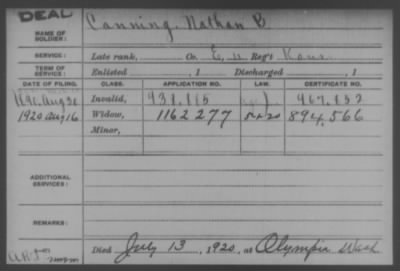 DEAL
NAME OF SOLDIER: Canning, Nathan B.
SERVICE: Late rank, Co. E, 11 Reg't Kans.
TERM OF SERVICE: Enlisted , 1 Discharged , 1
DATE OF FILING. CLASS. APPLICATION NO. LAW. CERTIFICATE NO.
Aug 30 Invalid, J
1920 Aug 16 Widow, 1162277 5-1-20 894,566
Minor,
ADDITIONAL SERVICES:
REMARKS:
Died July 13, 1920, at Olympia Wash